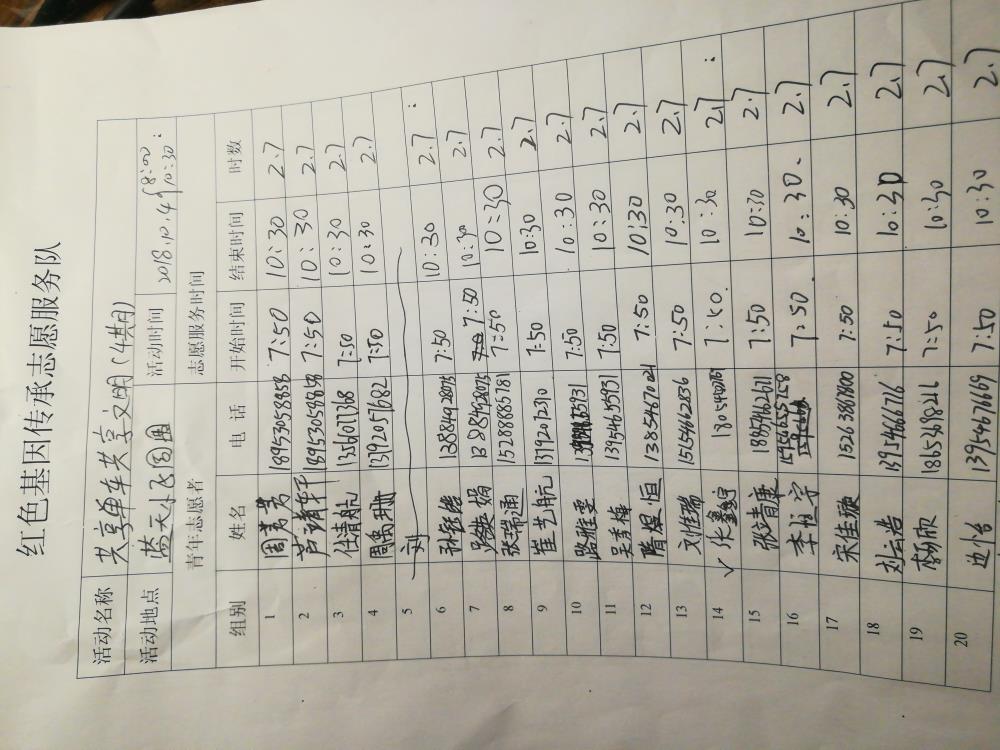 红色基因传承志愿服务队
活动名称 共享单车共享文明(4其月)
活动地点 蓝天小飞周围 活动时间 2018.10.4 8:00 10:30
青年志愿者 志愿服务时间
组别 姓名 电话 开始时间 结束时间 时数
1 周芳芳 18953058858 7:50 10:30 2.7
2 芦靖轩 18953058858 7:50 10:30 2.7
3 任清航 13561077368 7:50 10:30 2.7
4 周禹珊 13192051682 7:50 10:30 2.7
5 刘
6 13884928075 7:50 10:30 2.7
7 娟 7:50 10:30 2.7
8 张瑞通 15288885781 7:50 10:30 2.7
9 崔艺航 13792072310 7:50 10:30 2.7
10 路雅雯 7:50 10:30 2.7
11 吴秀梅 13954655931 7:50 10:30 2.7
12 隋煜恒 13854671021 7:50 10:30 2.7
13 刘维瑞 15154662836 7:50 10:30 2.7
14 张鑫宇 7:50. 10:30 2.7
15 张清康 18854662671 7:50 10:30 2.7
16 李恒宇 15954655258 7:50. 10:30. 2.7
17 宋佳璇 15263867800 7:50 10:30 2.7
18 刘云浩 13954666716 7:50 10:30 2.7
19 杨欣 18653688211 7:50 10:30 2.7
20 13954676669 7:50 10:30 2.7